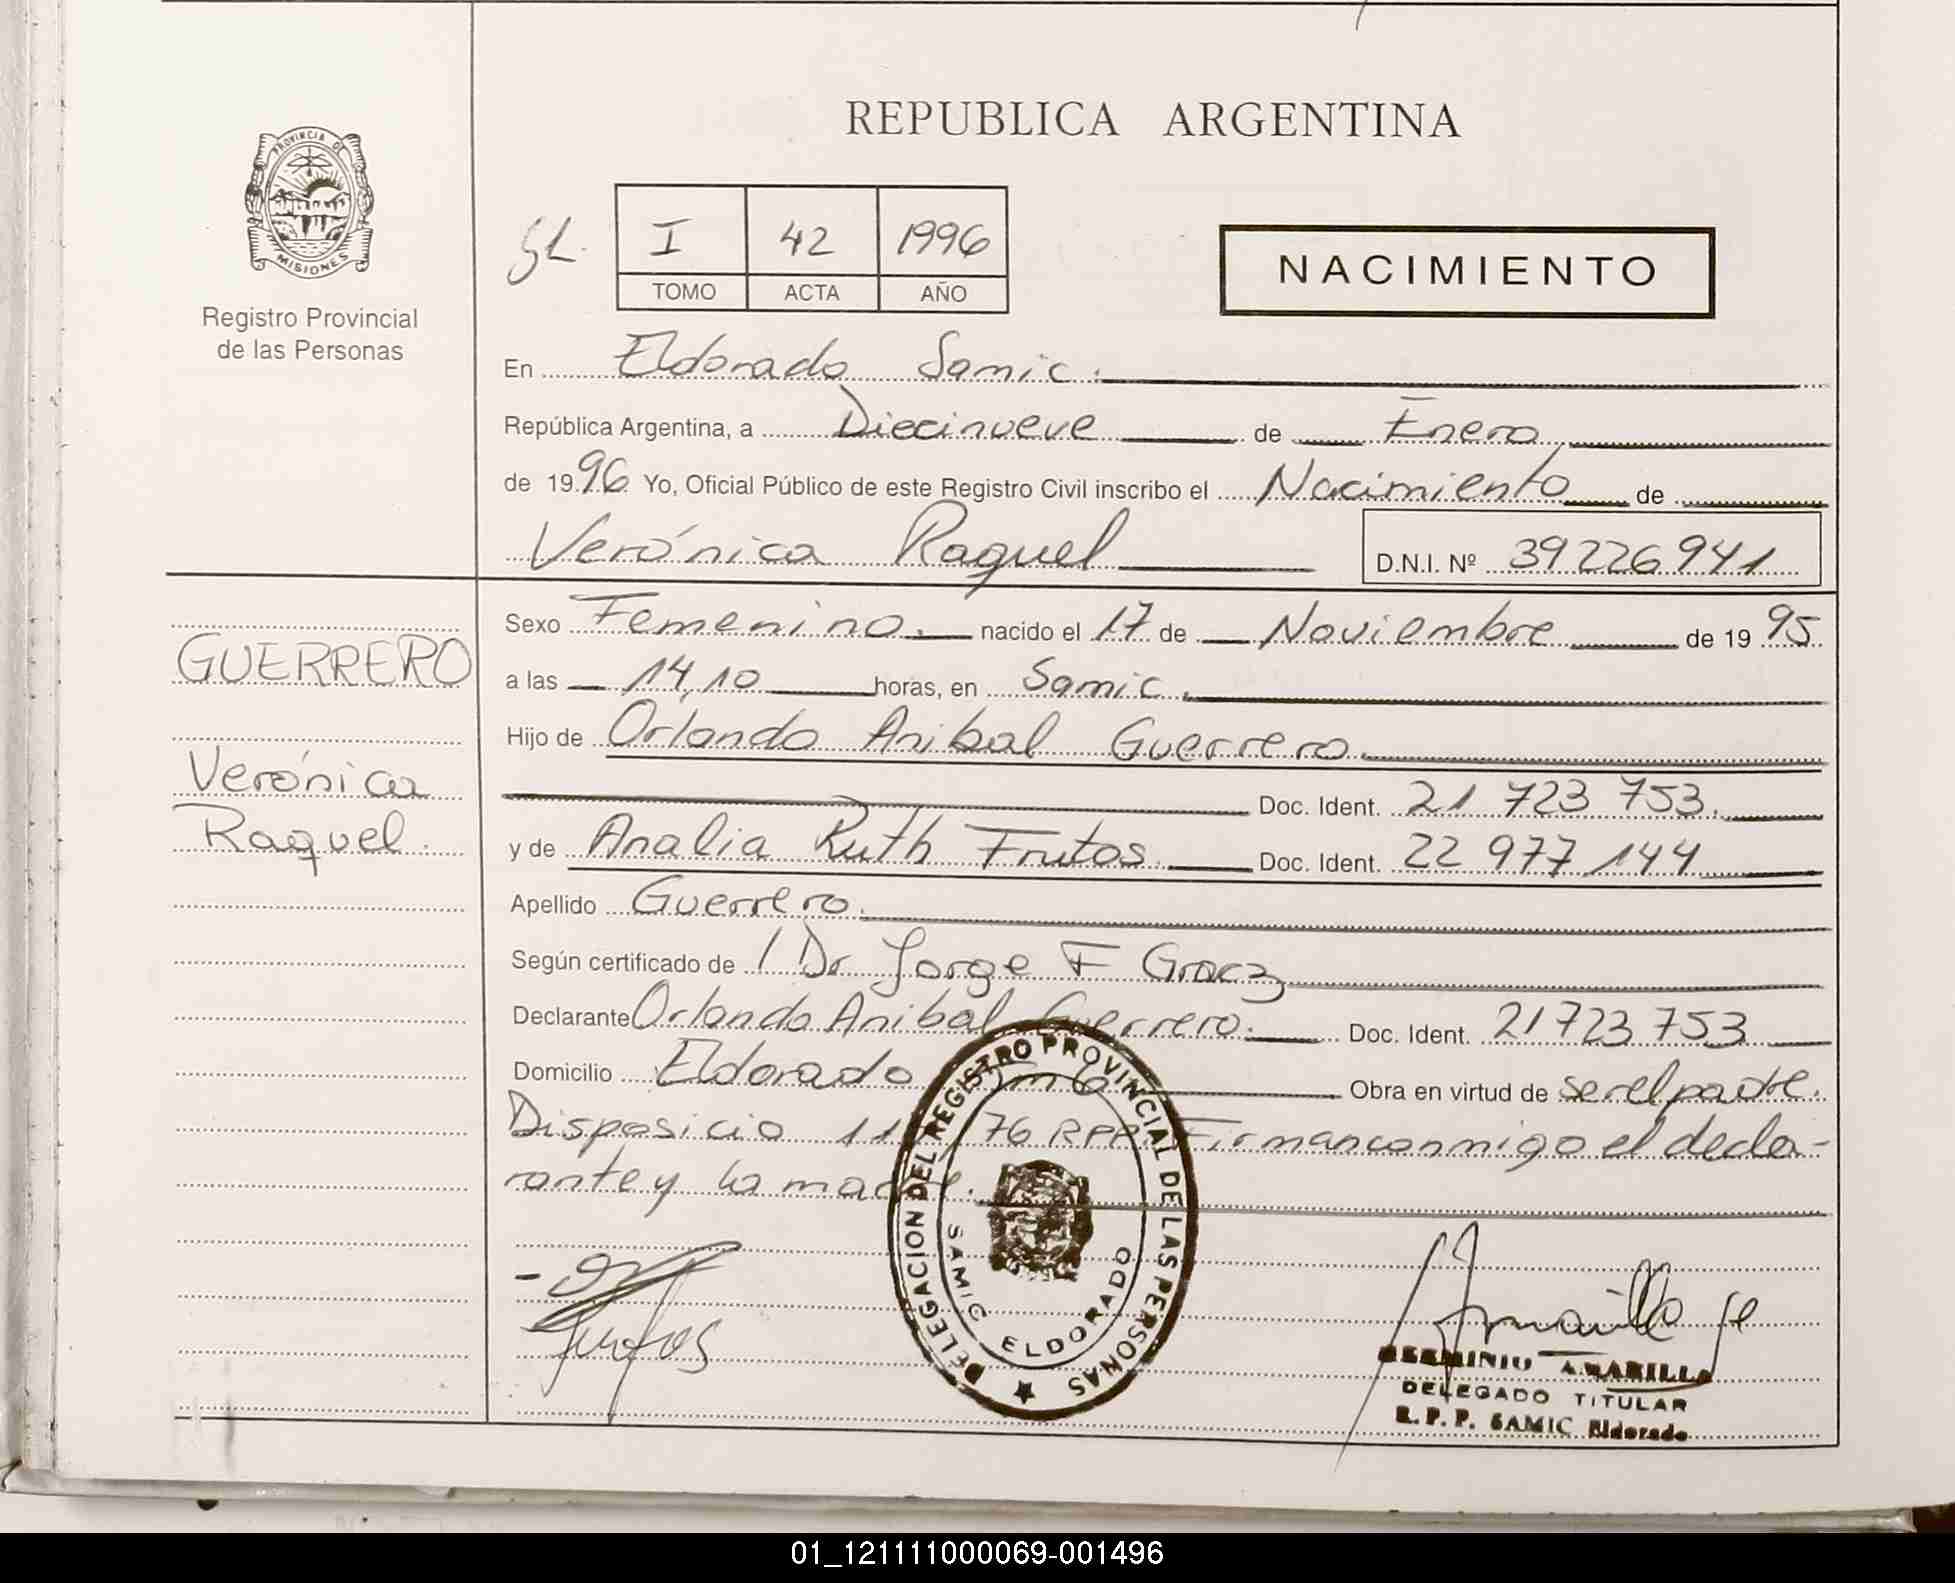 REPUBLICA ARGENTINA
PROVINCIA DE
MISIONES
Registro Provincial
de las Personas
I 42 1996
TOMO ACTA AÑO
NACIMIENTO
En Eldorado Samic.
República Argentina, a Diecinueve de Enero
de 1996 Yo, Oficial Público de este Registro Civil inscribo el Nacimiento de
Verónica Raquel D.N.I. Nº 39226941
GUERRERO
Verónica
Raquel.
Sexo Femenino. nacido el 17 de Noviembre de 1995
a las 14,10 horas, en Samic.
Hijo de Orlando Anibal Guerrero.
Doc. Ident. 21 723 753.
y de Analia Ruth Frutos Doc. Ident. 22 977 144
Apellido Guerrero.
Según certificado de Dr Jorge F
Declarante Orlando Anibal Guerrero. Doc. Ident. 21723 753
Domicilio Eldorado Obra en virtud de ser el padre.
Disposicio 76 RPP. Firman conmigo el decla-
rante y la madre.
DELEGACION DEL REGISTRO PROVINCIAL DE LAS PERSONAS
SAMIC ELDORADO
Frutos
HERMINIO AMARILLA
DELEGADO TITULAR
R.P.P. SAMIC Eldorado
01_121111000069-001496